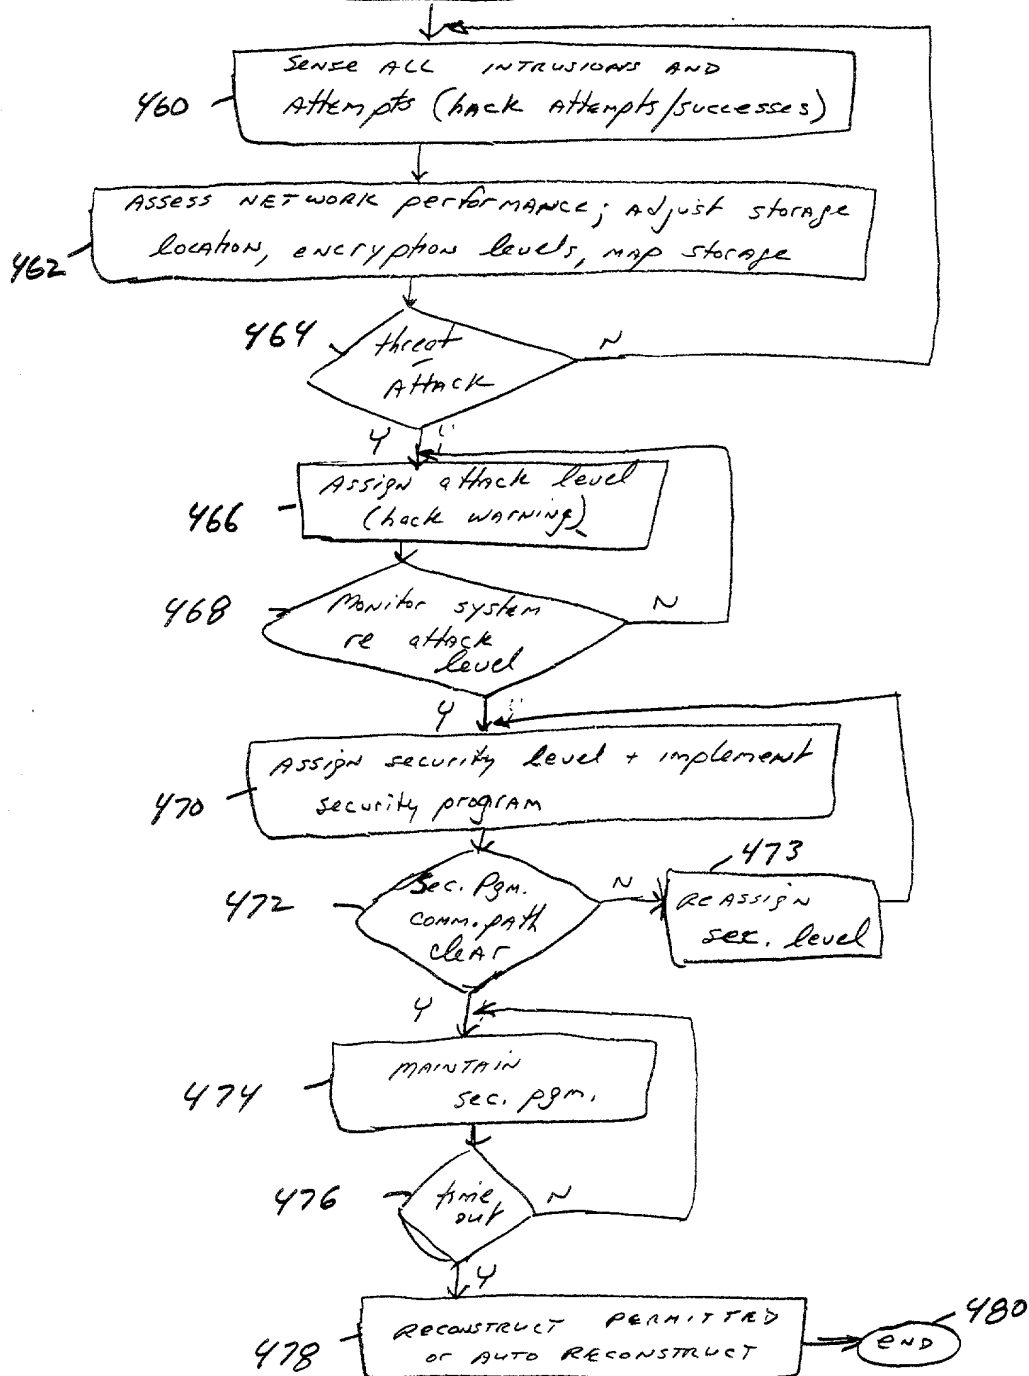 SENSE ALL INTRUSIONS AND
460
ATTEMPTS (hACK ATTEMPTS/SUCCESSES)
ASSESS NETWORK performANCE; Adjust storAge
462
locAtion, encryption levels, mAp storAge
464
threat
ATTACK
N
Y
Assign attack level
466
(hack WArNiNg)
468
Monitor system
re attack
level
N
Y
Assign security level + implement
470
security program
472
Sec. Pgm.
comm. path
cleAr
N
473
REASSIGN
sec. level
Y
474
MAINTAIN
sec. pgm.
476
time
out
N
Y
478
RECONSTRUCT PERMITTED
or AUTO RECONSTRUCT
END
480